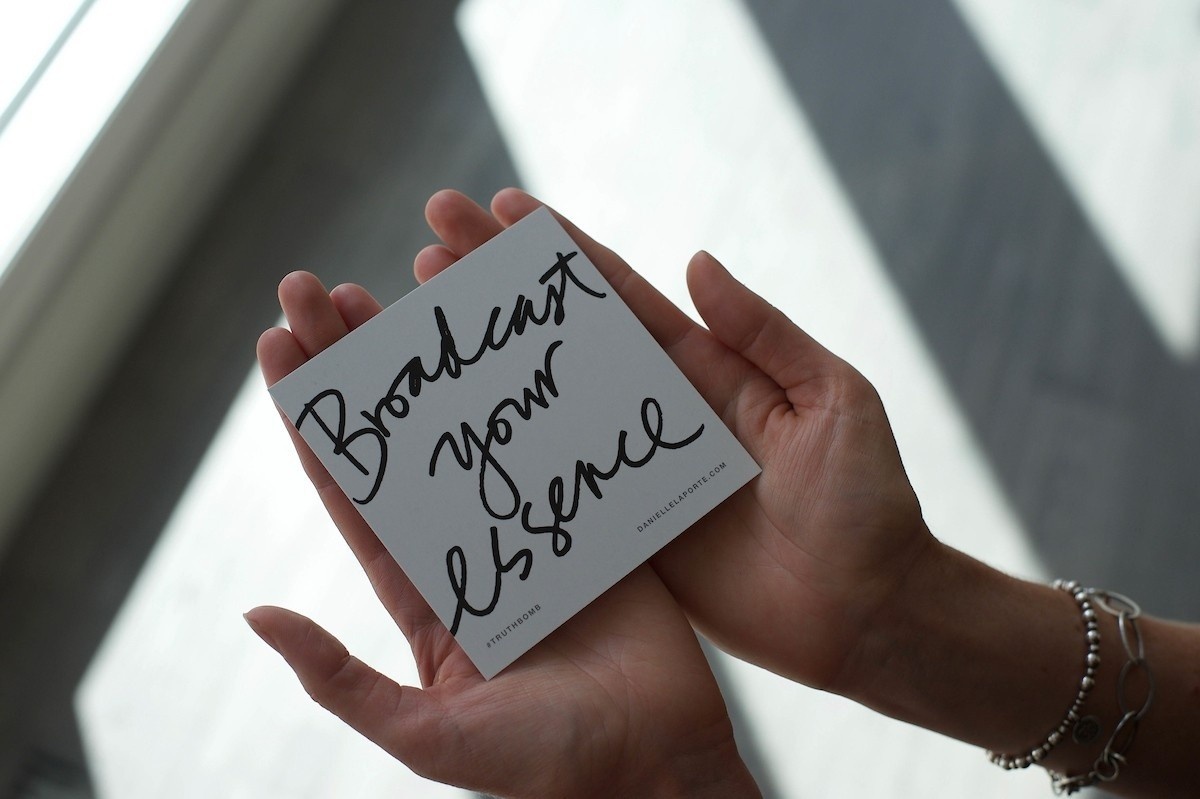 Broadcast
your
essence
DANIELLELAPORTE.COM
#TRUTHBOMB